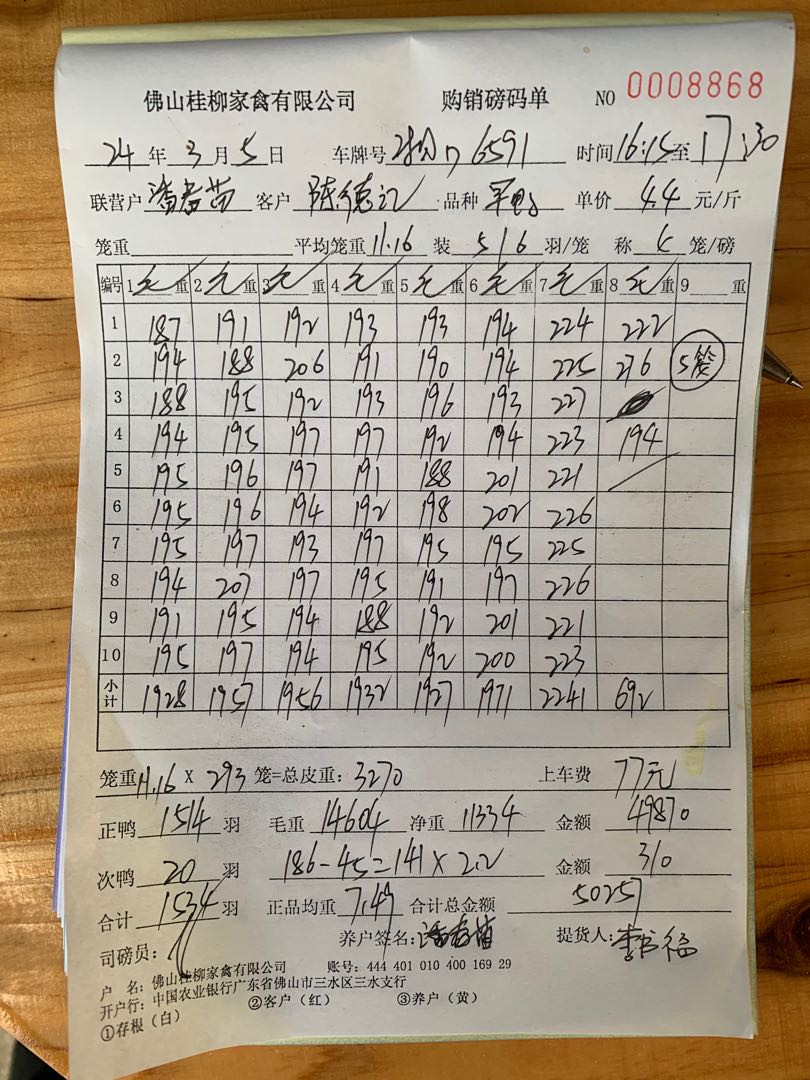 佛山桂柳家禽有限公司 购销磅码单 NO 0008868
24 年 3 月 5 日 车牌号 6591 时间 16:15 至 17:30
联营户 潘春苗 客户 陈德记 品种 单价 4.4 元/斤
笼重 平均笼重 11.16 装 5/6 羽/笼 称 笼/磅
编号 1 毛 重 2 毛 重 3 毛 重 4 毛 重 5 毛 重 6 毛 重 7 毛 重 8 毛 重 9 重
1 187 191 192 193 193 194 224 222
2 194 188 206 191 190 194 225 276 5笼
3 188 195 192 193 196 193 227
4 194 195 197 197 192 194 223 194
5 195 196 197 191 188 201 221
6 195 196 194 192 198 202 226
7 195 197 193 197 195 195 225
8 194 207 197 195 191 197 226
9 191 195 194 188 192 201 221
10 195 197 194 195 192 200 223
小计 1928 1957 1956 1932 1927 1971 2241 692
笼重 11.16 X 293 笼=总皮重: 3270 上车费 77元
正鸭 1514 羽 毛重 14604 净重 11334 金额 49870
次鸭 20 羽 186-45=141×2.2 金额 310
合计 1534 羽 正品均重 7.49 合计总金额 50257
司磅员: 养户签名: 潘春苗 提货人: 李书福
户 名: 佛山桂柳家禽有限公司 账号: 444 401 010 400 169 29
开户行: 中国农业银行广东省佛山市三水区三水支行
①存根（白） ②客户（红） ③养户（黄）